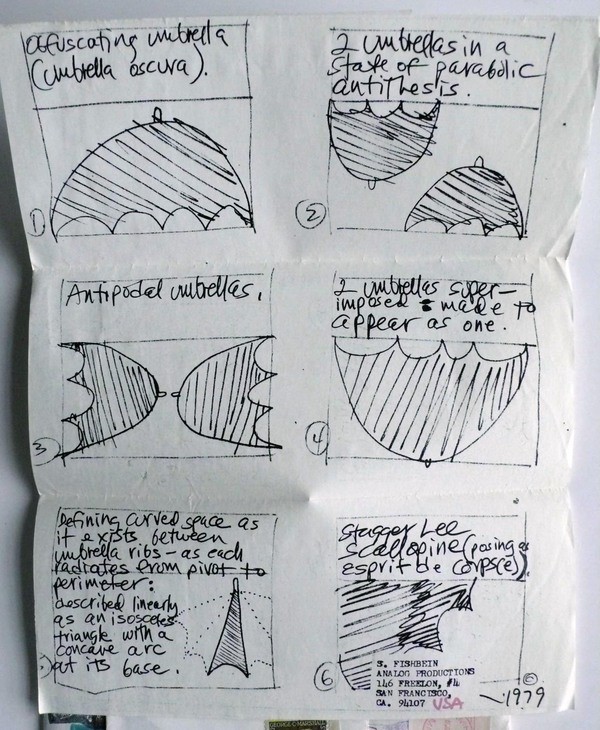 Obfuscating umbrella
(umbrella oscura).
1
2 umbrellas in a
state of parabolic
antithesis.
2
Antipodal umbrellas.
3
2 umbrellas super-
imposed - made to
appear as one.
4
Defining curved space as
it exists between
umbrella ribs - as each
radiates from pivot to
perimeter:
described linearly
as an isosceles
triangle with a
concave arc
at its base.
Stagger Lee
Scallopine (posing as
esprit de corps(e)).
6
S. FISHBEIN
ANALOG PRODUCTIONS
146 FREELON, #4
SAN FRANCISCO,
CA. 94107 USA
©
~1979
GEORGE C MARSHALL